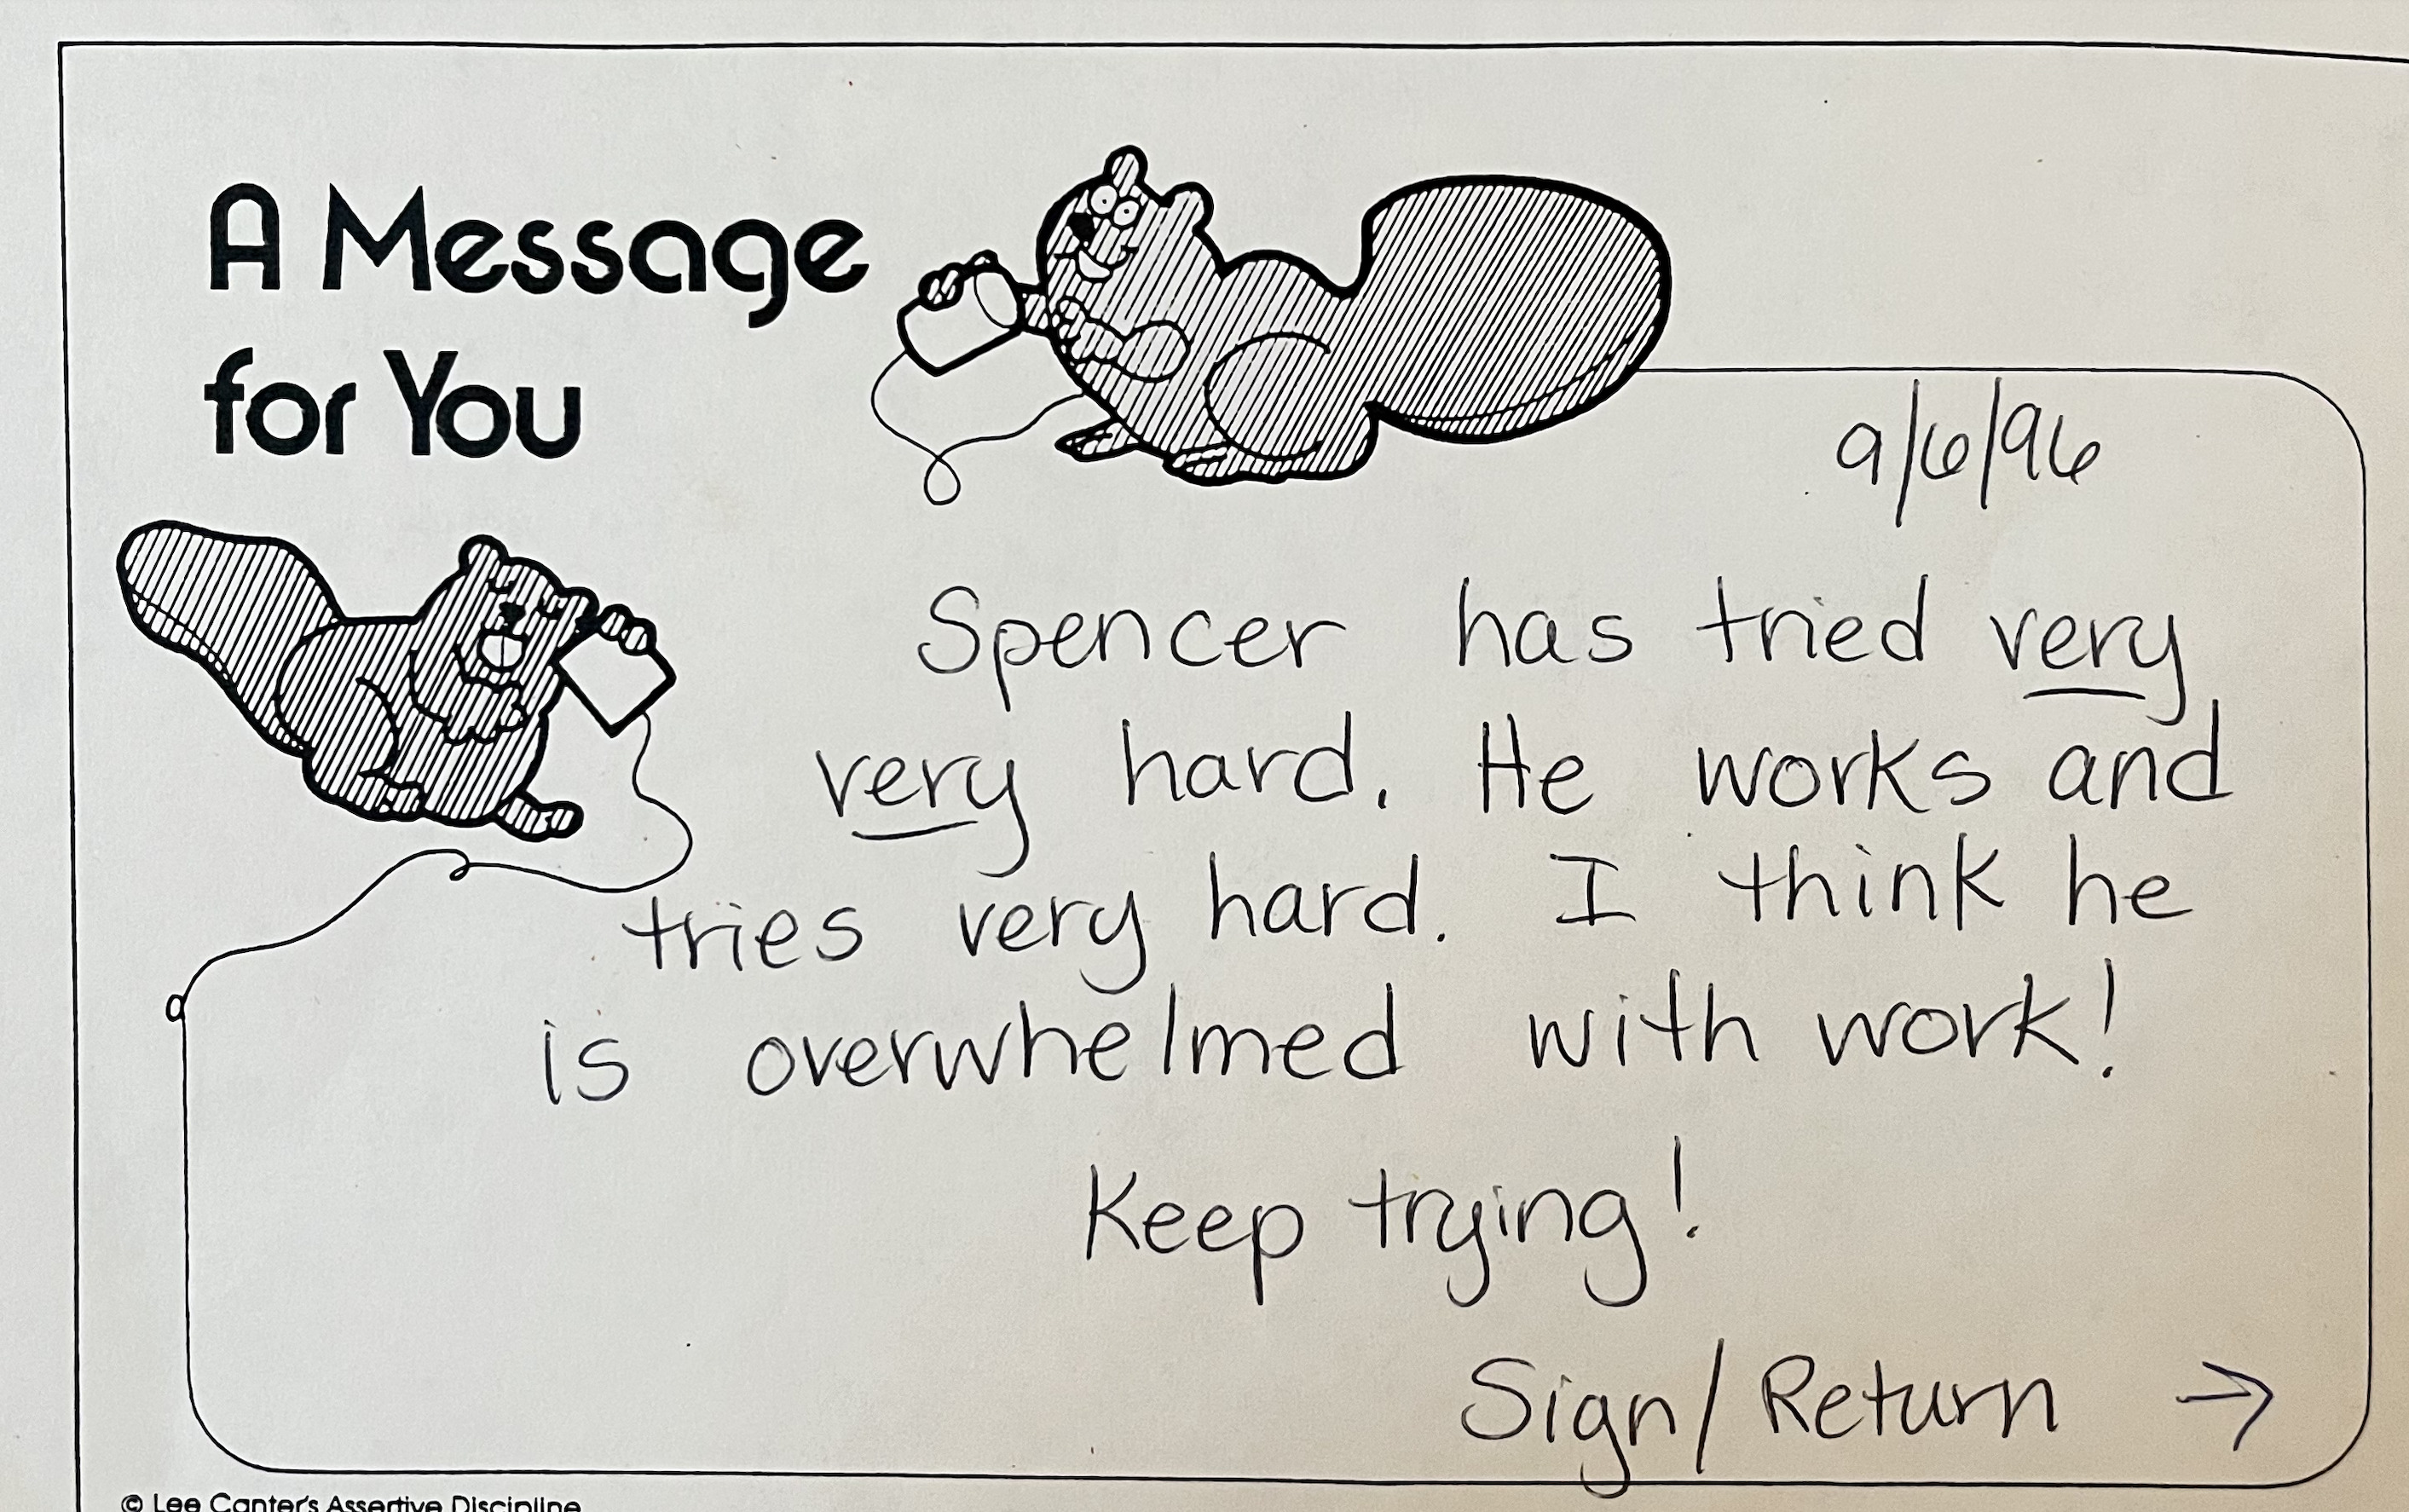 A Message
for You
9/6/96
Spencer has tried very
very hard. He works and
tries very hard. I think he
is overwhelmed with work!
Keep trying!
Sign/Return →
© Lee Canter's Assertive Discipline